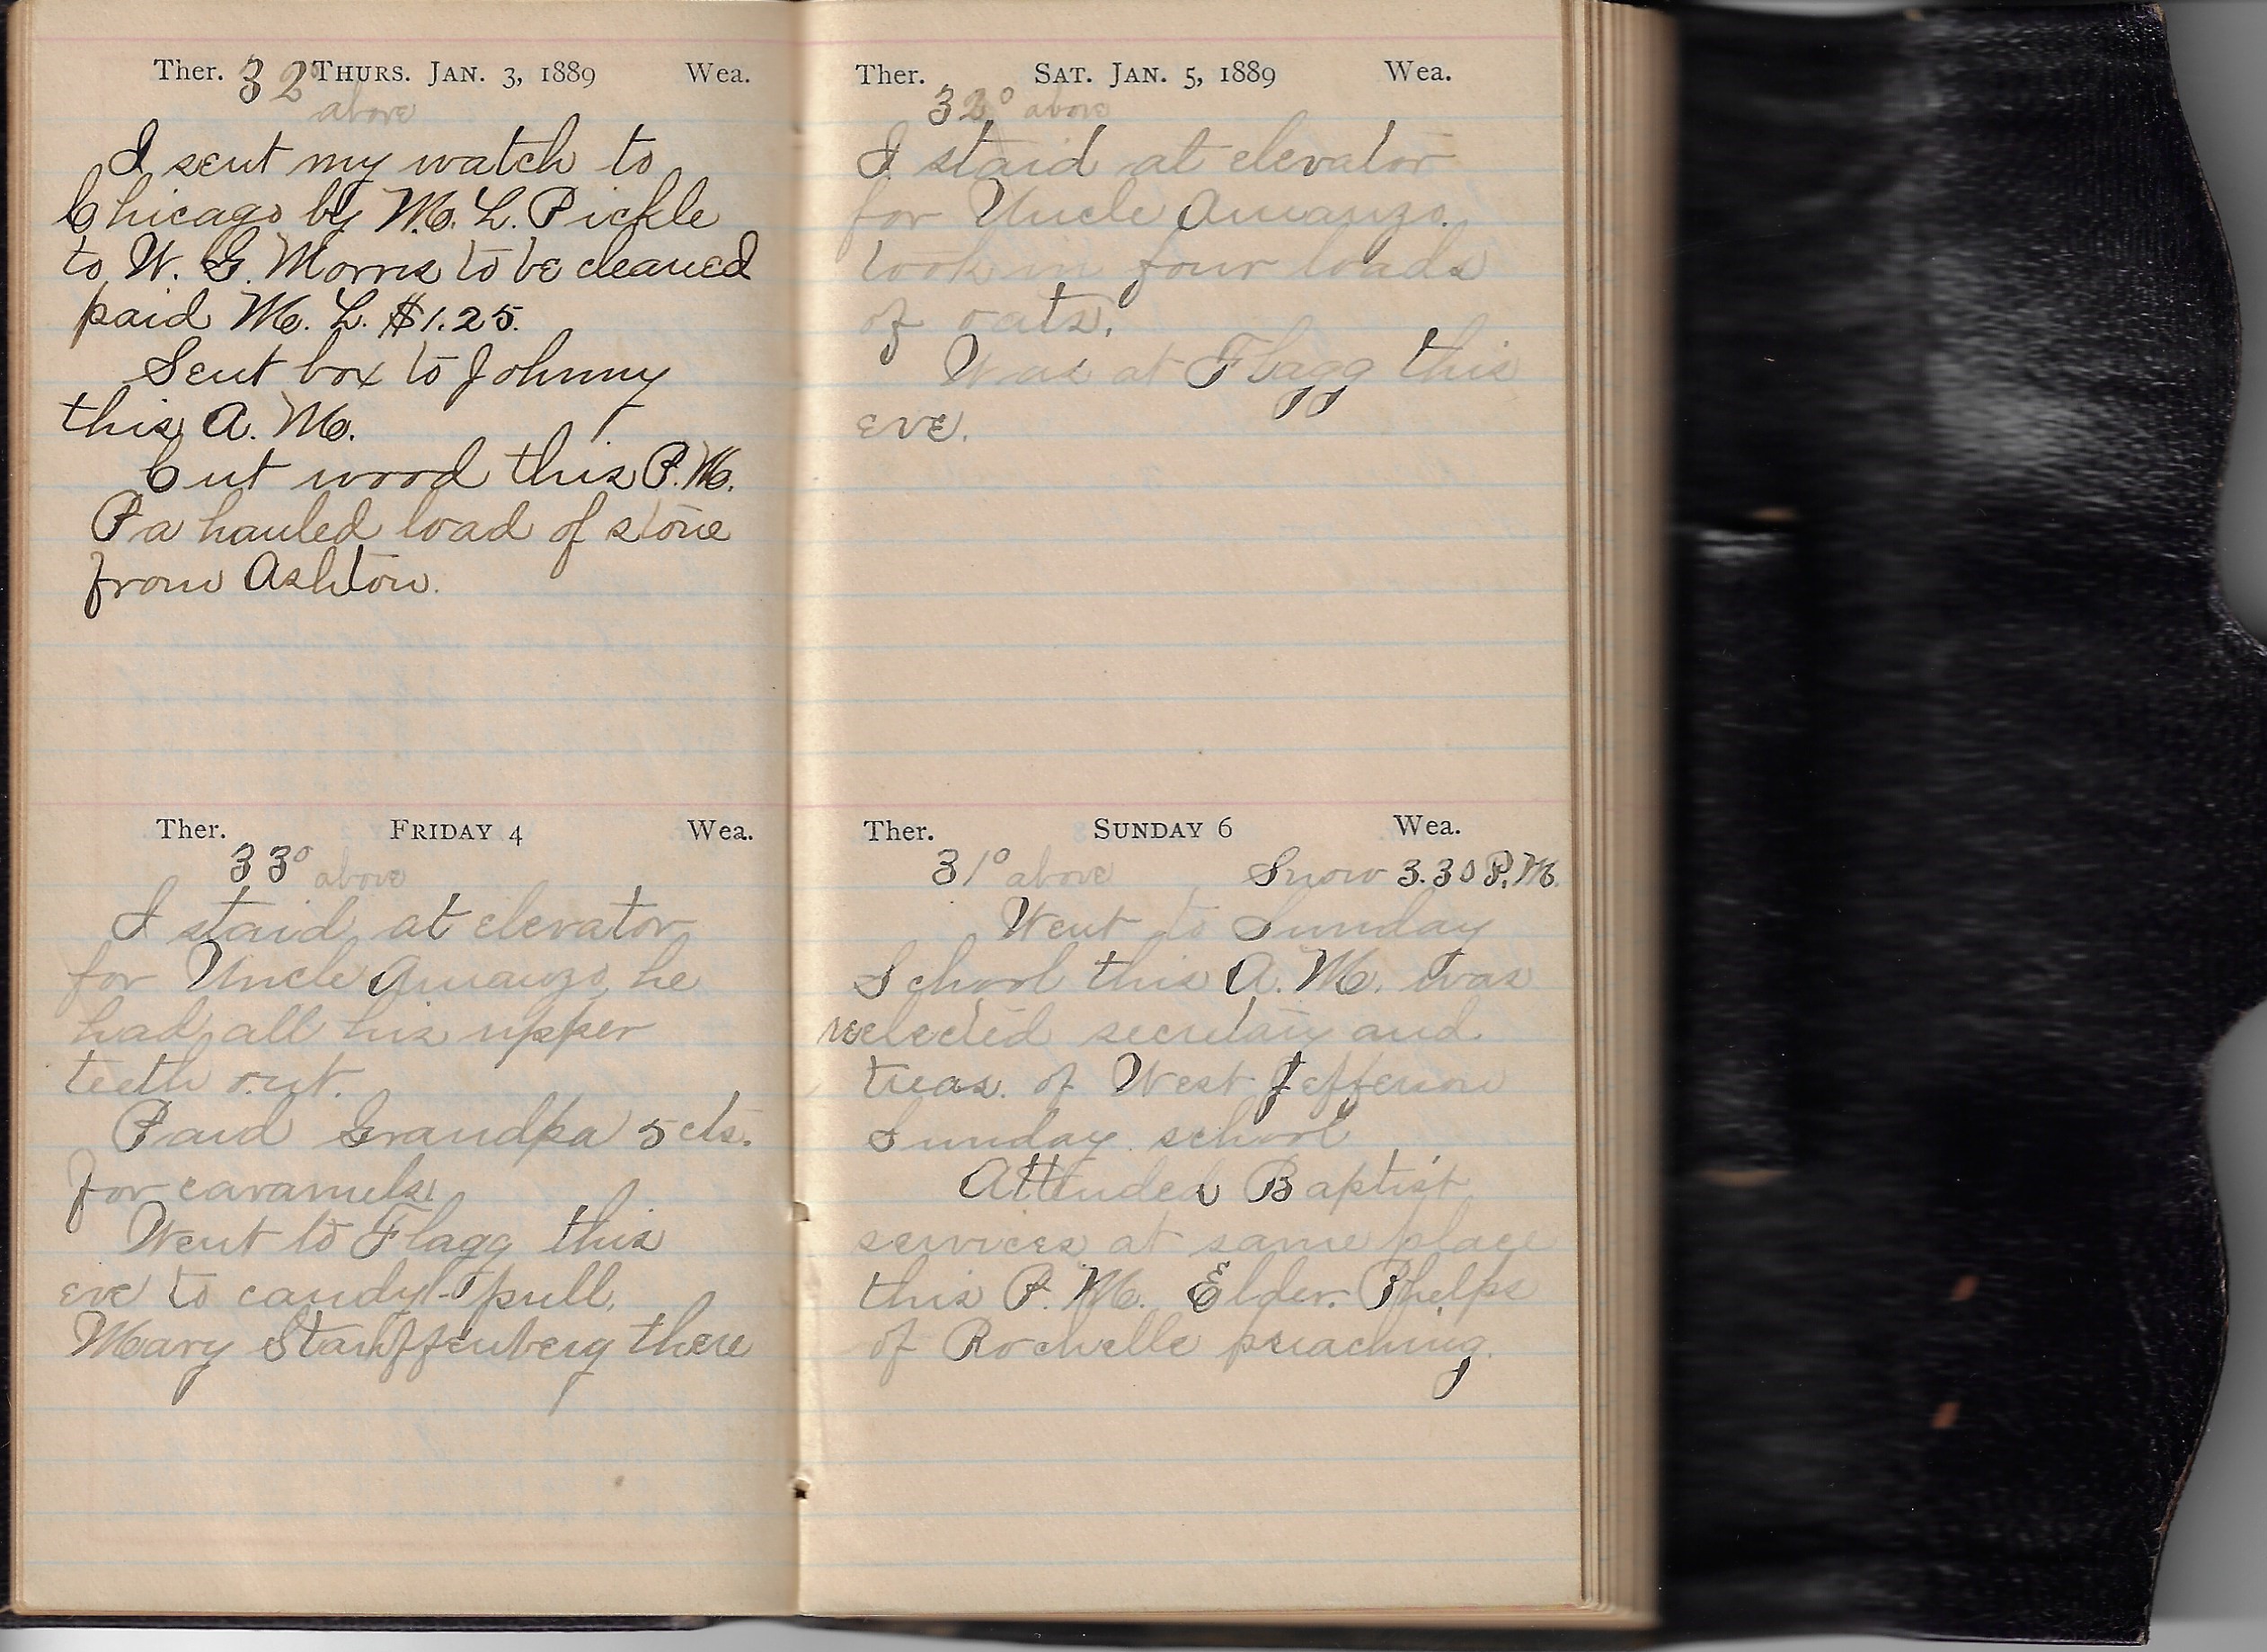 Ther. 32° THURS. JAN. 3, 1889 Wea.
above
I sent my watch to
Chicago by M. L. Pickle
to W. G. Morris to be cleaned
paid M. L. $1.25.
Sent box to Johnny
this A. M.
Cut wood this P.M.
Pa hauled load of stone
from Ashton.
Ther. FRIDAY 4 Wea.
33° above
I staid at elevator
for Uncle Amanzo, he
had all his upper
teeth out.
Paid Grandpa 5 cts.
for caramels.
Went to Flagg this
eve to candy-pull.
Mary Stauffenberg there
Ther. SAT. JAN. 5, 1889 Wea.
32° above
I staid at elevator
for Uncle Amanzo.
took in four loads
of oats.
Was at Flagg this
eve.
Ther. SUNDAY 6 Wea.
31° above Snow 3.30 P.M.
Went to Sunday
School this A. M. was
reelected secretary and
treas. of West Jefferson
Sunday school
Attended Baptist
services at same place
this P. M. Elder Phelps
of Rochelle preaching.